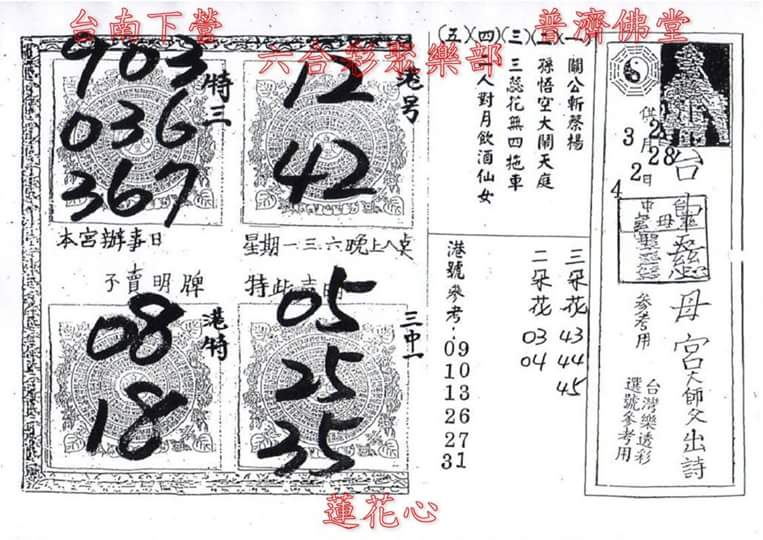 台南下營
普濟佛堂
六合彩聚樂部
903
036
367
特三
12
42
港号
本宮辦事日
星期一三六晚上八点
不賣明牌
特此声明
08
18
港特
05
25
35
三中一
(一)關公斬蔡楊
(二)孫悟空大鬧天庭
(三)三蕊花無四拖車
(四)二人對月飲酒仙女
(五)
三朵花 43 44 45
二朵花 03 04
港號參考:09 10 13 26 27 31
母宮
大師父出詩
參考用
台灣樂透彩
選號參考用
蓮花心